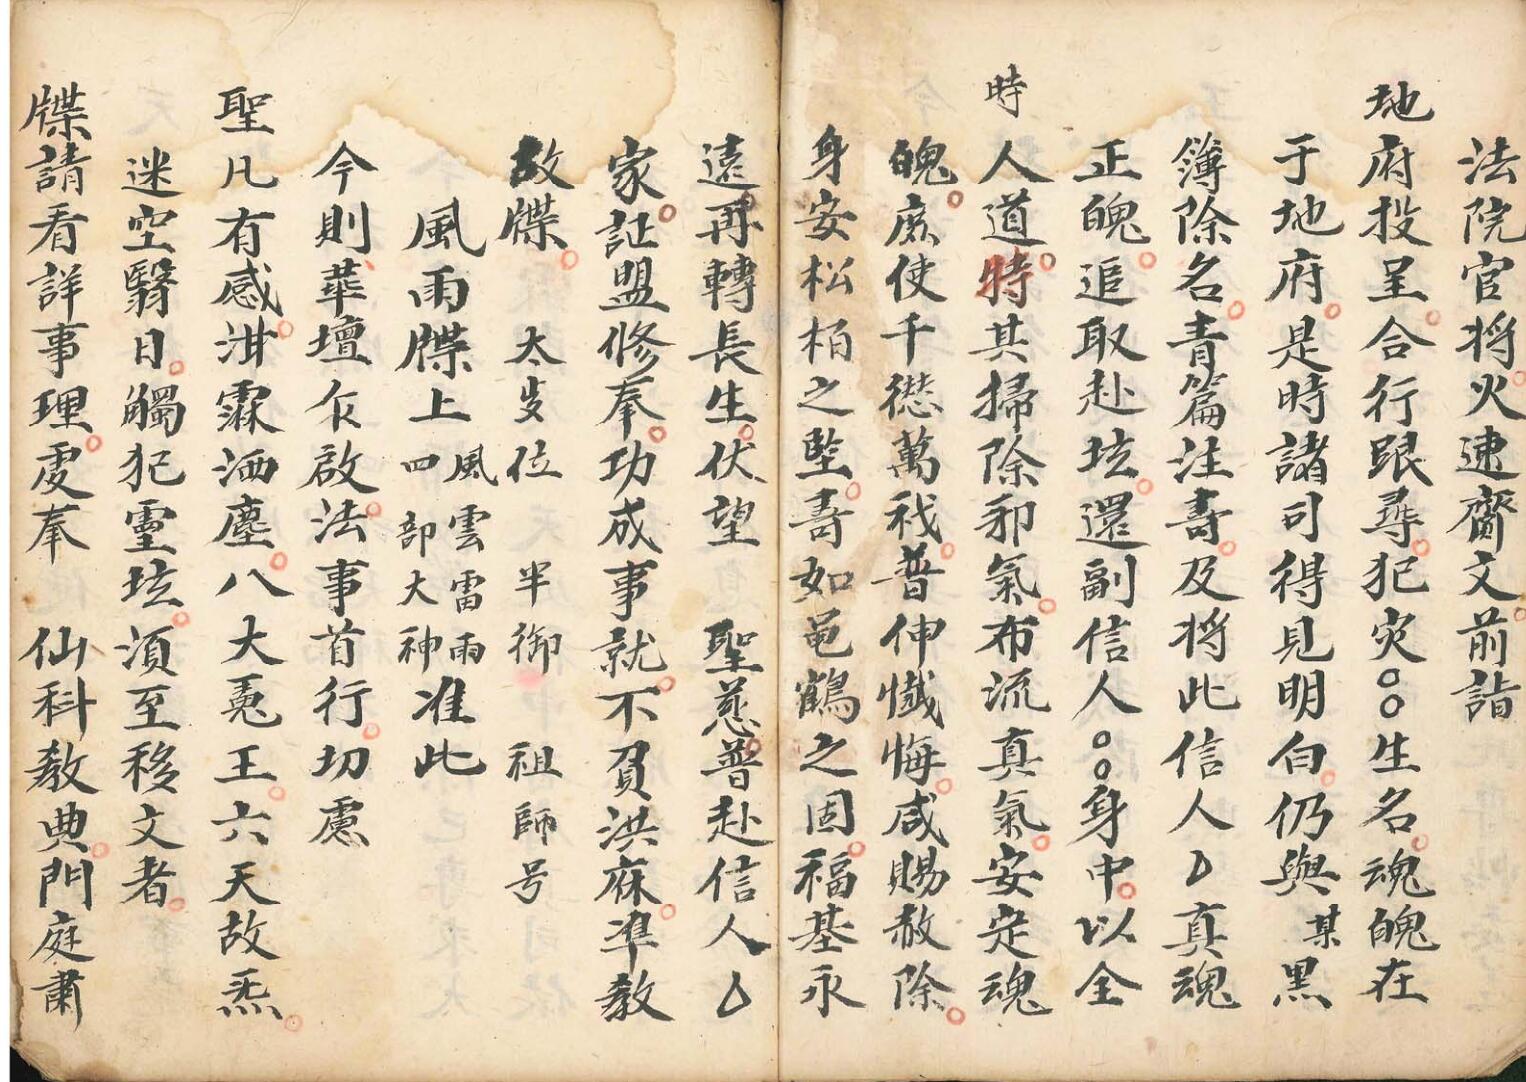 法院官将火速齎文前詣
地府投呈合行跟尋犯灾○○生名魂魄在
于地府是時諸司得見明白仍與某黑
簿除名青篇注壽及将此信人𠄌真魂
正魄追取赴坛還副信人○○身中以全
時人道特其掃除邪氣布流真氣安定魂
魄庶使千愆萬戕普伸懺悔咸賜赦除
身安松栢之堅壽如龟鶴之固福基永
遠再轉長生伏望 聖慈普赴信人𠄌
家証盟修奉功成事就不負洪庥準教
故牒 太歲位 半御 祖師号
風雨牒上 風雲雷雨 四部大神 准此
今則華壇乍啟法事首行切慮
聖凡有感泔霖洒塵八大𠒇王六天故炁
迷空翳日觸犯靈坛須至移文者
牒請看詳事理處奉 仙科教典門庭肅